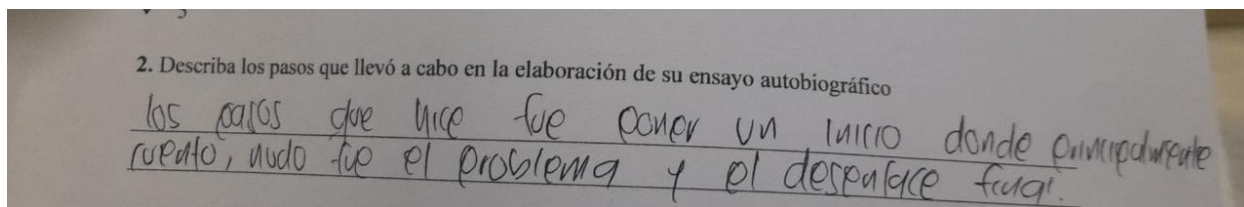 2. Describa los pasos que llevó a cabo en la elaboración de su ensayo autobiográfico
los pasos que hice fue poner un inicio donde principalmente
cuento, nudo fue el problema y el desenlace final.